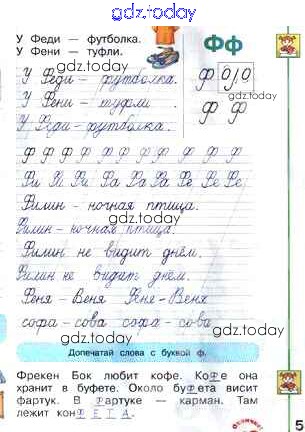 gdz.today
У Феди — футболка.
У Фени — туфли.
Фф
gdz.today
У Феди - футболка.
У Фени - туфли.
У Феди - футболка.
gdz.today
Ф Ф
gdz.today
Ф Ф Ф Ф Ф Ф Ф Ф Ф Ф
Фи Фи Фи Фа Фа Фа Фе Фе Фе
Филин - ночная птица.
gdz.today
Филин - ночная птица.
Филин не видит днём.
Филин не видит днём.
Феня - Веня Феня - Веня
софа - сова софа - сова
gdz.today
Допечатай слова с буквой ф.
Фрекен Бок любит кофе. Кофе она
хранит в буфете. Около буфета висит
фартук. В фартуке — карман. Там
лежит конФЕТА.
gdz.today
Отлично!
5